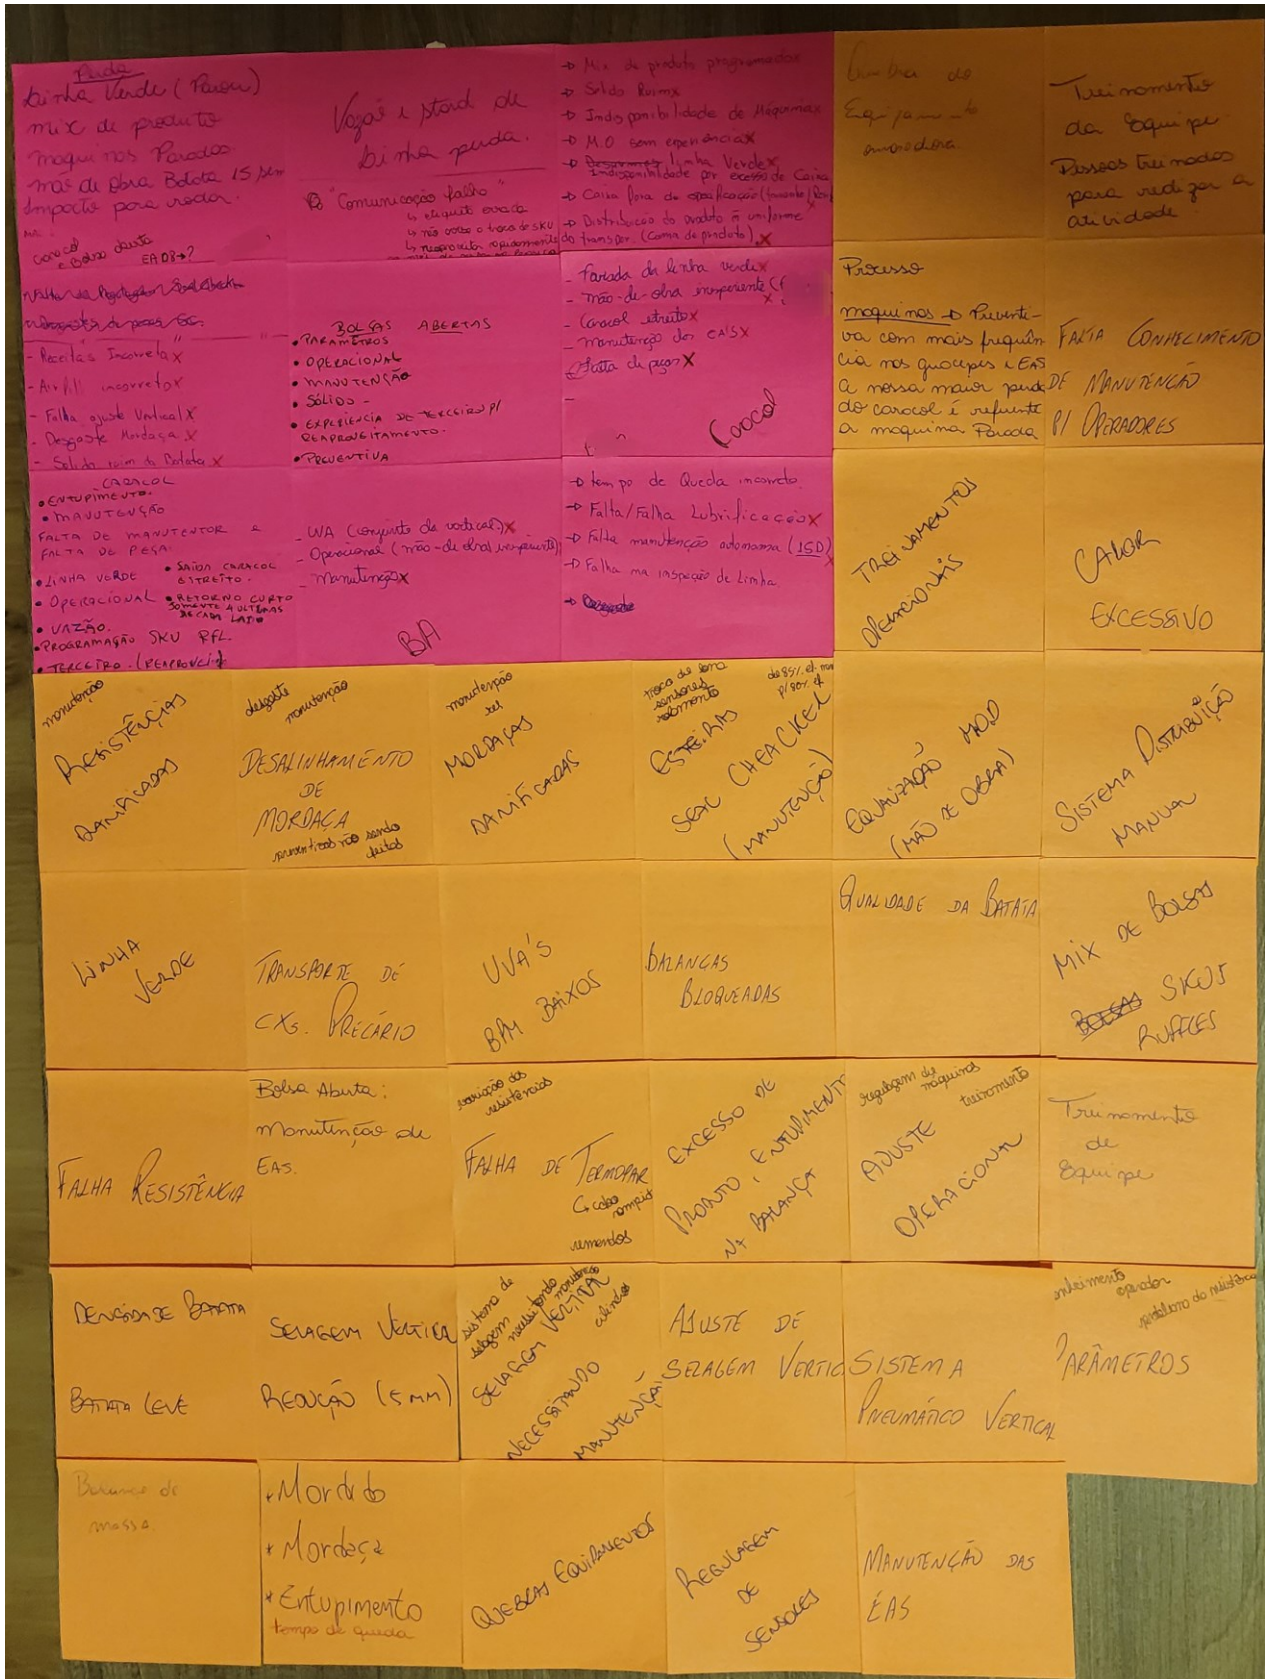 Perda
Linha Verde (Parou)
mix de produto
maquinas Paradas
mão de obra Batota 15 sem
Impacto para rodar.
caracol
e Bolsa aberta
EA D8→?
Vazai e stard de
Linha perda.
"Comunicação falha"
↳ etiqueta errada
↳ não avisa a troca de SKU
↳ reaproveitar rapidamente
→ Mix de produto programadox
→ Solda Ruimx
→ Indisponibilidade de Máquinax
→ M.O sem experiênciax
→ linha Verdex
Indisponibilidade por excesso de Caixa
→ Caixa fora de especificação
→ Distribuição do produto ñ uniforme
do transpor. (Cama de produto).x
Equipamento
Treinamento
da Equipe.
Pessoas treinadas
para realizar a
atividade.
- Receitas Incorretax
- Air fill incorretox
- Falha ajuste Verticalx
- Desgaste Mordaçax
- Solda ruim da Batatax
BOLSAS ABERTAS
• PARAMETROS
• OPERACIONAL
• MANUTENÇÃO
• SÓLIDO -
• EXPERIÊNCIA DE TERCEIRO P/
REAPROVEITAMENTO.
• PREVENTIVA
- Parada da linha verdex
- mão-de-obra inexperiente
- Caracol estreitox
- manutenção dos EA'Sx
- Falta de peçasx
-
Caracol
Processo
maquinas → Preventi-
va com mais frequên
cia nos guacepes e EAS
a nossa maior perda
do caracol é refuente
a maquina Parada
FALTA CONHECIMENTO
DE MANUTENÇÃO
P/ OPERADORES
CARACOL
• ENTUPIMENTO.
• MANUTENÇÃO
FALTA DE MANUTENTOR E
FALTA DE PEÇA.
• LINHA VERDE
• SAÍDA CARACOL
ESTREITO.
• OPERACIONAL
• RETORNO CURTO
SOMENTE 4 ULTIMAS
DE CADA LADO
• VAZÃO.
• PROGRAMAÇÃO SKU RFL.
• TERCEIRO. (REAPROVEI.)
- UVA (conjunto da vertical.)x
- Operacional (mão-de-obra inexperiente)
- manutençãox
BA
→ tempo de Queda incorreto
→ Falta/Falha Lubrificaçãox
→ Falta manutenção autonoma (ISD)
→ Falha na inspeção de Linha.
→
TREINAMENTOS
OPERACIONAIS
CALOR
EXCESSIVO
manutenção
RESISTÊNCIAS
DANIFICADAS
desgaste
manutenção
DESALINHAMENTO
DE
MORDAÇA
preventivas não sendo
feitas
manutenção
MORDAÇAS
DANIFICADAS
troca de lona
sensores
rolamento
ESTEIRAS
SEAL CHEACKER
(MANUTENÇÃO)
EQUALIZAÇÃO MOD
(MÃO DE OBRA)
SISTEMA DISTRIBUIÇÃO
MANUAL
LINHA
VERDE
TRANSPORTE DE
CXs. PRECÁRIO
UVA'S
BPM BAIXOS
BALANÇAS
BLOQUEADAS
QUALIDADE DA BATATA
MIX DE BOLSAS
BOLSAS SKUS
RUFFLES
FALHA RESISTÊNCIA
Bolsa Aberta:
Manutenção de
EAS.
variação das
resistências
FALHA DE TERMOPAR
↳ cabo
rompido
remendos
EXCESSO DE
PRODUTO, ENTUPIMENTO
NA BALANÇA
regulagem de
máquinas
treinamento
AJUSTE
OPERACIONAL
Treinamento
de
Equipe
DENSIDADE BATATA
BATATA LEVE
SELAGEM VERTICAL
REDUÇÃO (5MM)
sistema de
selagem
necessitando
manutenção
cilindro
SELAGEM VERTICAL
NECESSITANDO
MANUTENÇÃO
AJUSTE DE
SELAGEM VERTIC
SISTEMA
PNEUMÁTICO VERTICAL
operador
PARÂMETROS
Balança de
massa
* Mordido
* Mordaça
* Entupimento
tempo de queda
QUEBRAS EQUIPAMENTOS
REGULAGEM
DE
SENSORES
MANUTENÇÃO DAS
EAS